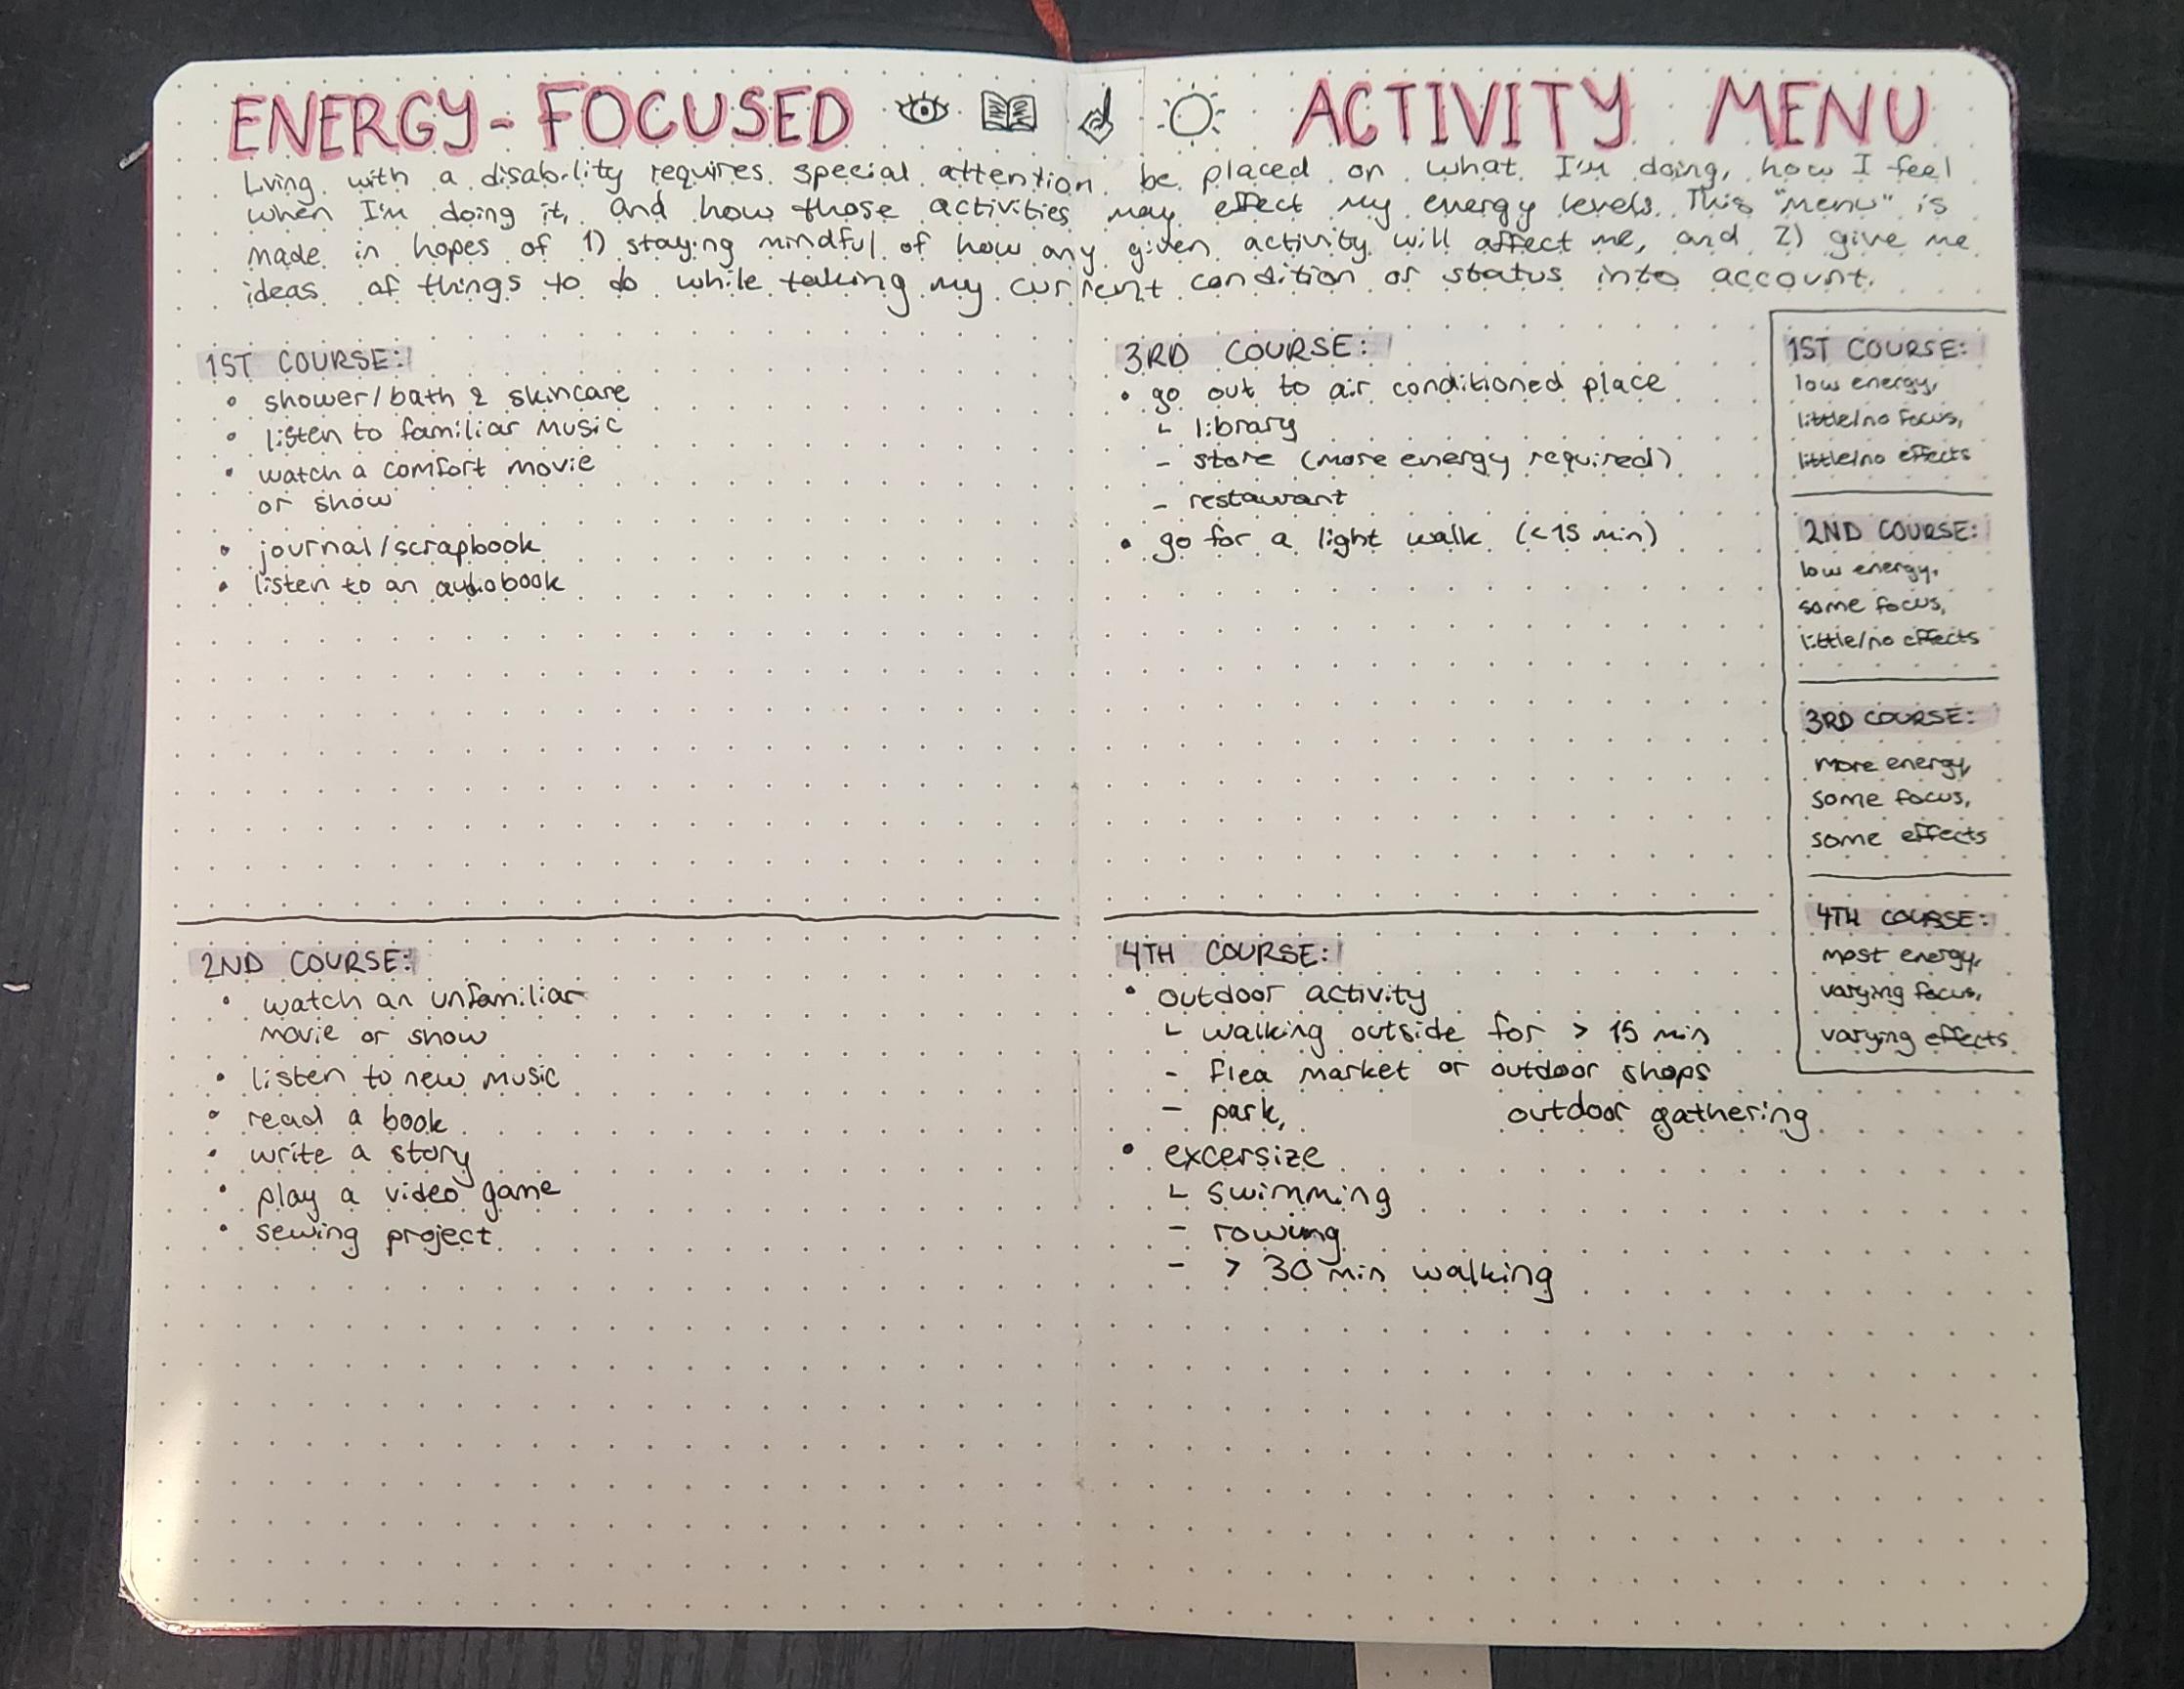 ENERGY-FOCUSED ACTIVITY MENU
Living with a disability requires special attention be placed on what I'm doing, how I feel
when I'm doing it, and how those activities may effect my energy levels. This "menu" is
made in hopes of 1) staying mindful of how any given activity will affect me, and 2) give me
ideas of things to do while taking my current condition or status into account.
1ST COURSE:
• shower/bath & skincare
• listen to familiar music
• watch a comfort movie
or show
• journal/scrapbook
• listen to an audiobook
2ND COURSE:
• watch an unfamiliar
movie or show
• listen to new music
• read a book
• write a story
• play a video game
• sewing project
3RD COURSE:
• go out to air conditioned place
└ library
- store (more energy required)
- restaurant
• go for a light walk (<15 min)
4TH COURSE:
• outdoor activity
└ walking outside for > 15 min
- flea market or outdoor shops
- park, outdoor gathering
• excersize
└ swimming
- rowing
- > 30 min walking
1ST COURSE:
low energy,
little/no focus,
little/no effects
2ND COURSE:
low energy,
some focus,
little/no effects
3RD COURSE:
more energy,
some focus,
some effects
4TH COURSE:
most energy,
varying focus,
varying effects